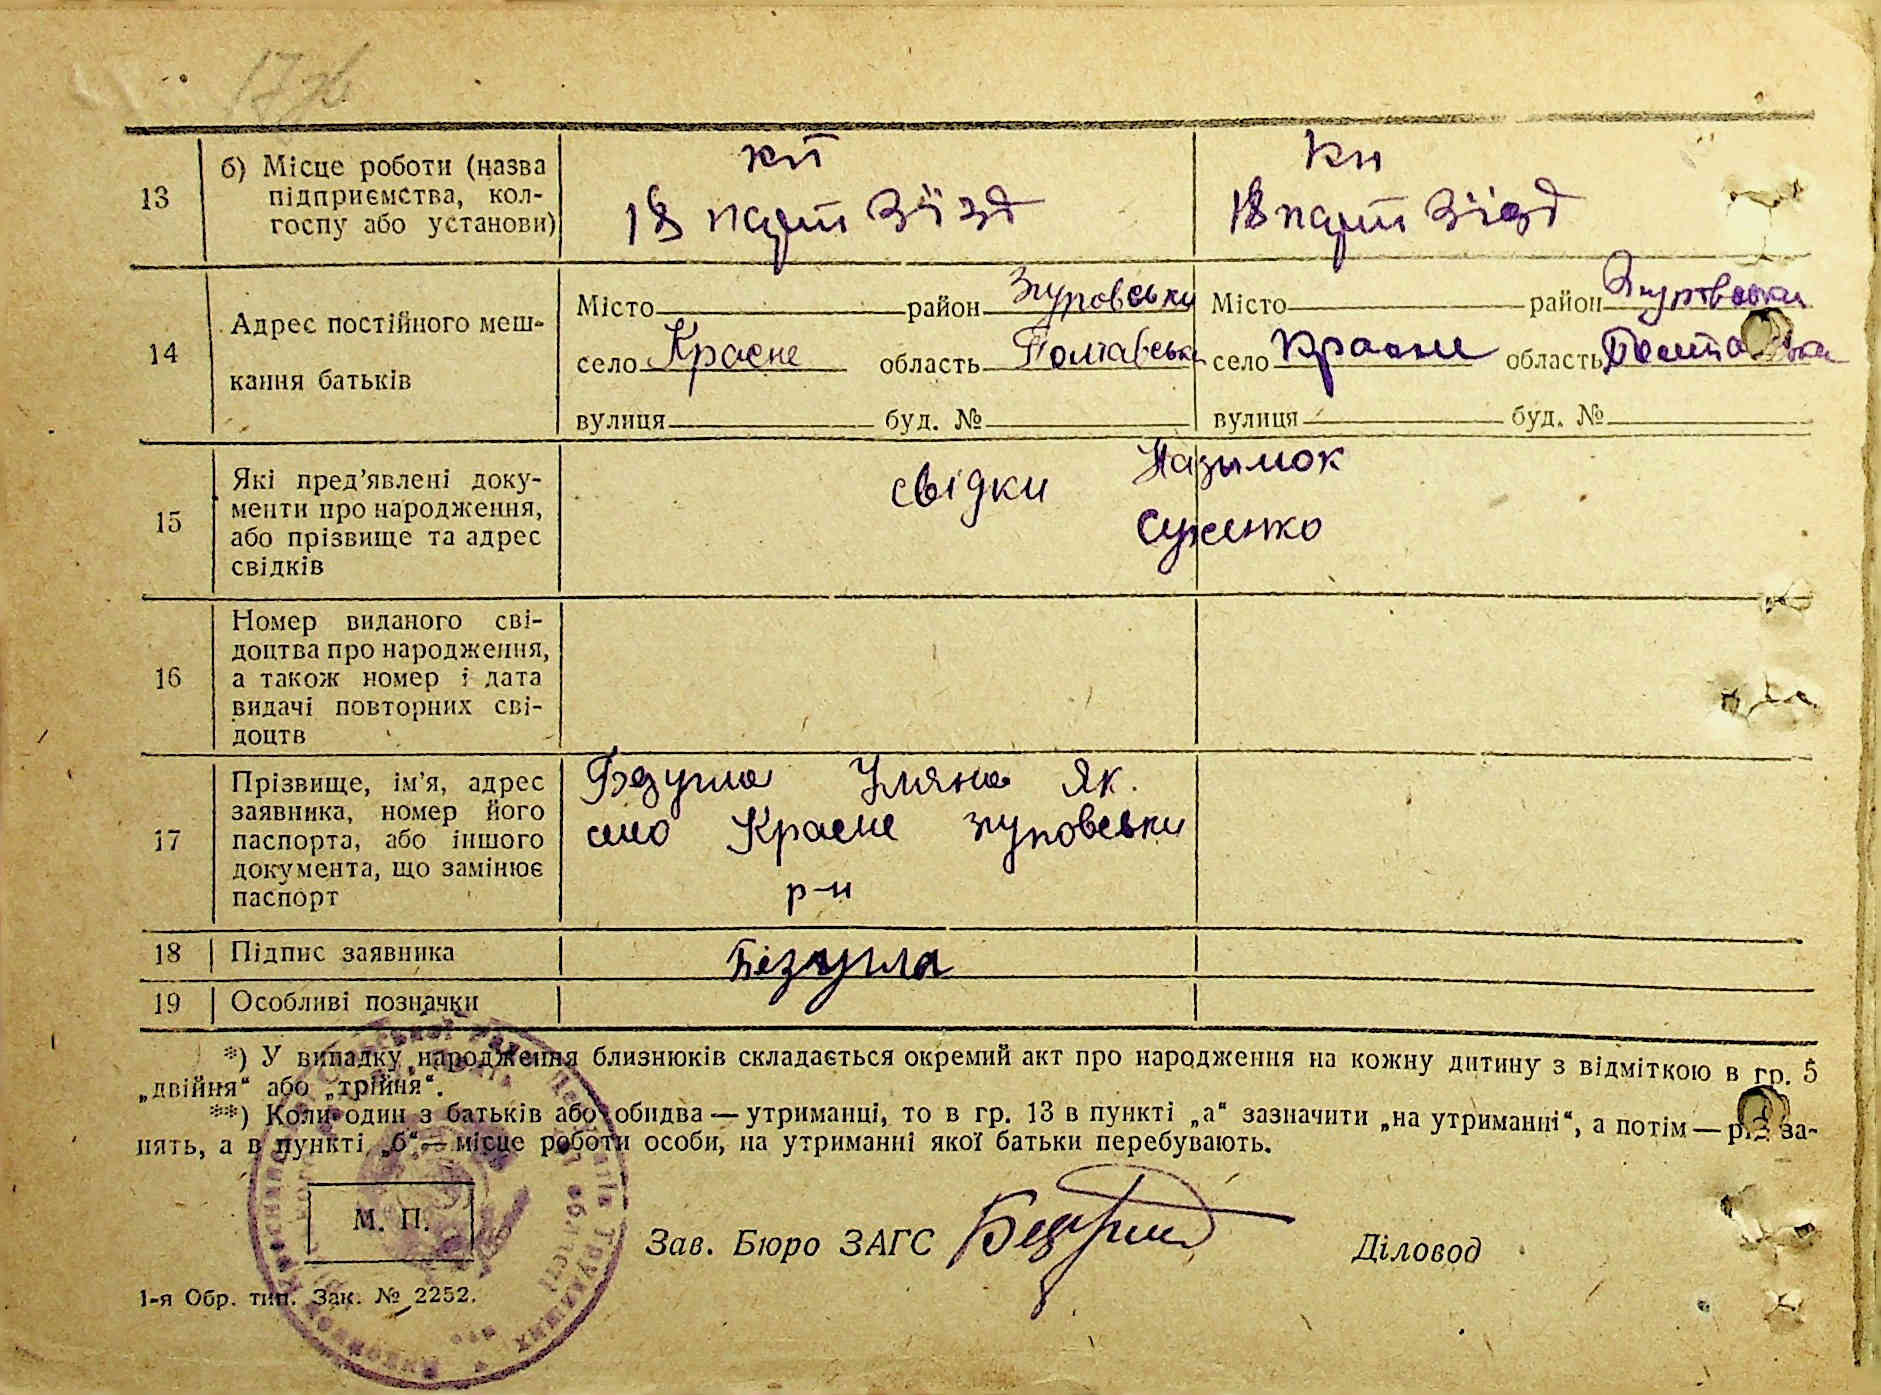 13
б) Місце роботи (назва
підприємства, кол-
госпу або установи)
кп
18 парт Зїзд
Кп
18 парт Зїзд
14
Адрес постійного меш-
кання батьків
Місто район Згуровськи
село Красне область Полтавська
вулиця буд. №
Місто район Згуровськи
село Красне область Полтавська
вулиця буд. №
15
Які пред'явлені доку-
менти про народження,
або прізвище та адрес
свідків
свідки
16
Номер виданого сві-
доцтва про народження,
а також номер і дата
видачі повторних сві-
доцтв
17
Прізвище, ім'я, адрес
заявника, номер його
паспорта, або іншого
документа, що замінює
паспорт
Безугла Уляна Як.
село Красне згуровськи
р-н
18
Підпис заявника
Безугла
19
Особливі позначки
*) У випадку народження близнюків складається окремий акт про народження на кожну дитину з відміткою в гр. 5
„двійня“ або „трійня“.
**) Коли один з батьків або обидва — утриманці, то в гр. 13 в пункті „а“ зазначити „на утриманні“, а потім — рід за-
нять, а в пункті „б“ — місце роботи особи, на утриманні якої батьки перебувають.
М. П.
Зав. Бюро ЗАГС
Діловод
1-я Обр. тип. Зак. № 2252.